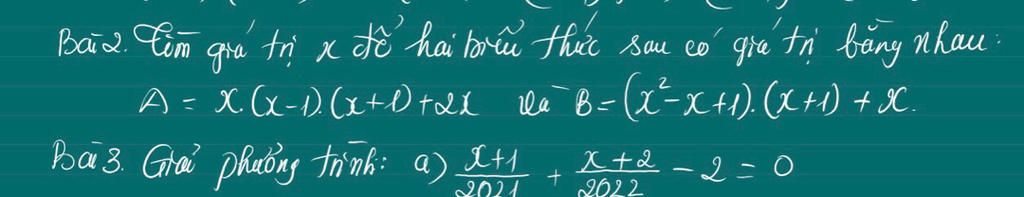 Bài 2. Tìm giá trị x để hai biểu thức sau có giá trị bằng nhau:
A = x.(x-1).(x+1)+2x và B = (x²-x+1).(x+1) + x.
Bài 3. Giải phương trình: a) \frac{x+1}{2021} + \frac{x+2}{2022} - 2 = 0